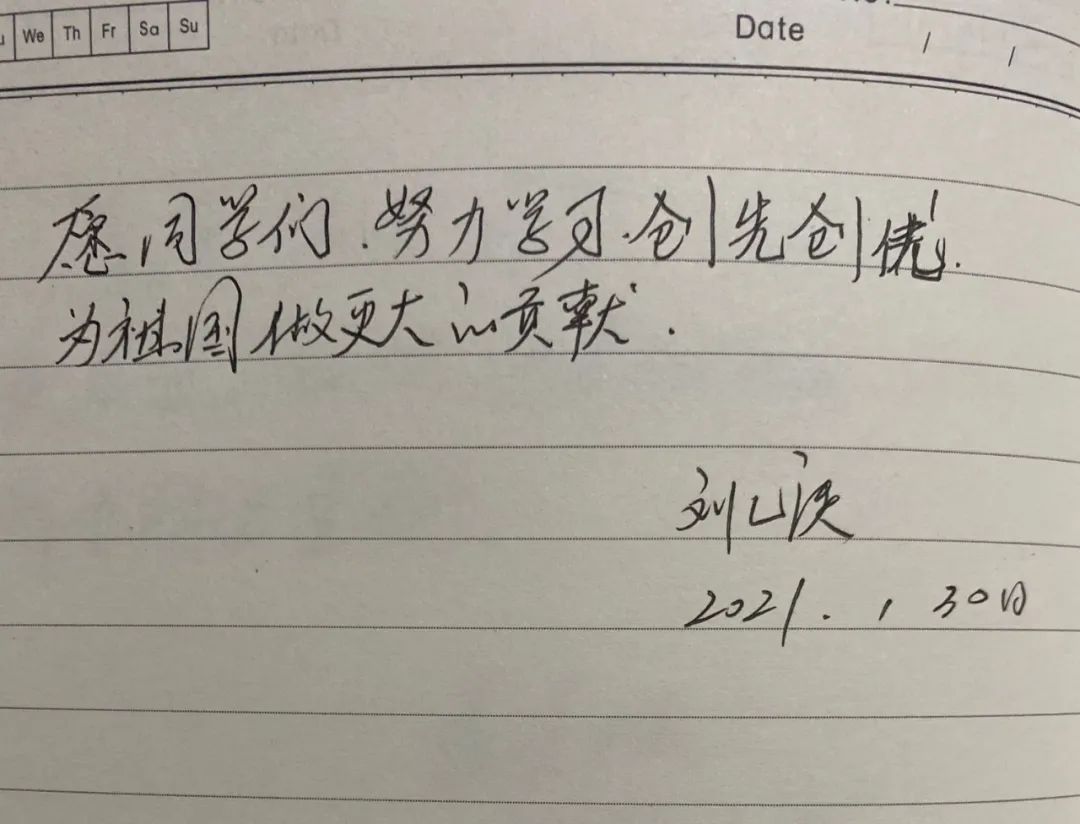 We Th Fr Sa Su
Date / /
愿同学们.努力学习.创先创优.
为祖国做更大的贡献.
刘
2021. 1 30日